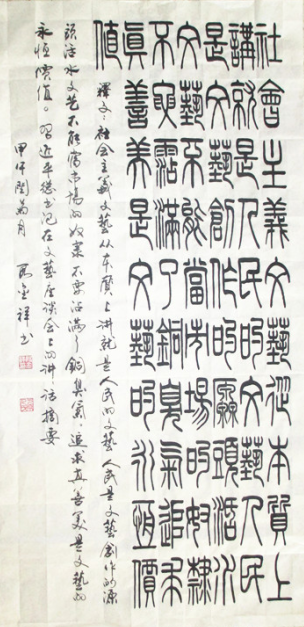 社會主義文藝從本質上
講就是人民的文藝人民
是文藝創作的源頭活水
文藝不能當市場的奴隸
不要霑滿了銅臭氣追求
眞善美是文藝的永恆價
值
釋文：社会主義文藝从本質上讲就是人民的文藝人民是文藝創作的源
頭活水文艺不能當市場的奴隶不要沾滿了銅臭氣追求真善美是文藝的
永恒價值。習近平總书记在文藝座談会上的讲话摘要
甲午閏菊月 金祥书